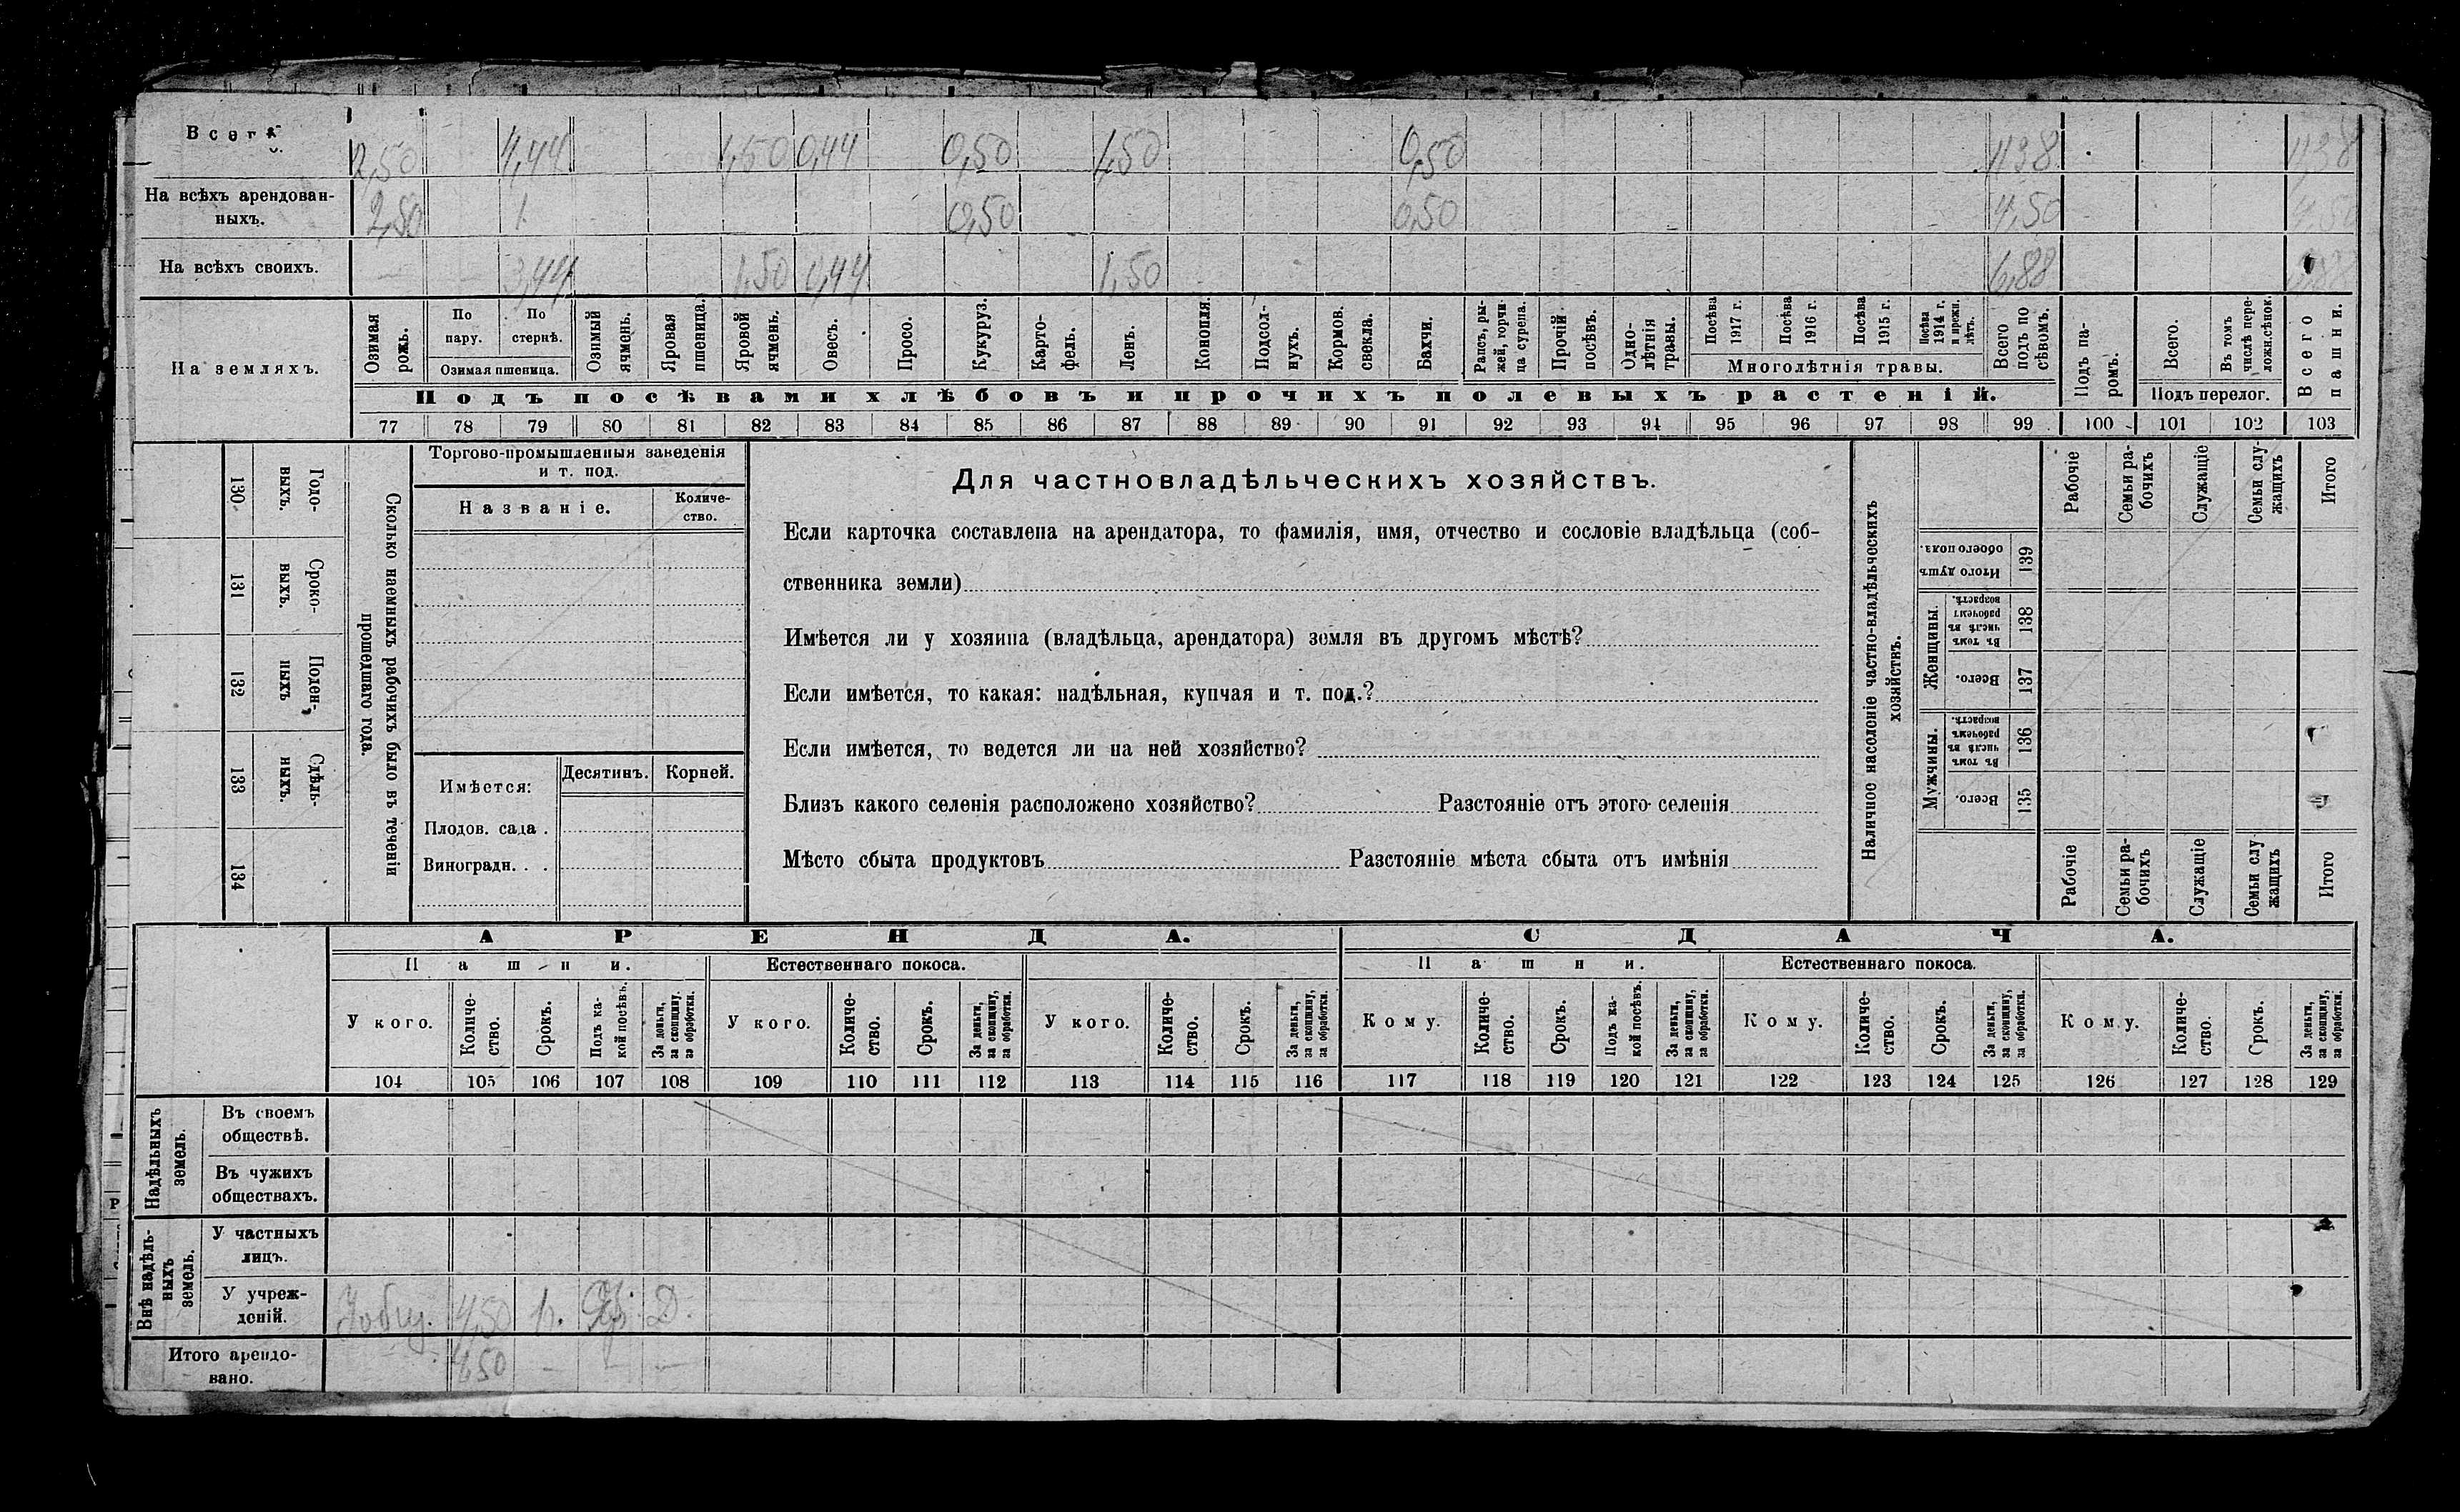 Всего 2,50 4,44 1,50 0,44 0,50 1,50 0,50 11,38 11,38
На всѣхъ арендован-
ныхъ. 2,50 1 0,50 0,50 4,50 4,50
На всѣхъ своихъ. — — 3,44 1,50 0,44 1,50 6,88 6,88
На земляхъ.
Озимая рожь.
По пару.
По стернѣ.
Озимая пшеница.
Озимый ячмень.
Яровая пшеница.
Яровой ячмень.
Овесъ.
Просо.
Кукуруз.
Карто-
фель.
Ленъ.
Конопля.
Подсол-
нухъ.
Кормов.
свекла.
Бахчи.
Рапсъ, ры-
жей, горчи
ца сурепа.
Прочій
посѣвъ.
Одно-
лѣтнія
травы.
Посѣва
1917 г.
Посѣва
1916 г.
Посѣва
1915 г.
Посѣва
1914 г.
и прежн.
лѣтъ.
Многолѣтнія травы.
Всего
подъ по
сѣвомъ.
Подъ па-
ромъ.
Всего.
Въ томъ
числѣ пере-
ложн.сѣнок.
Подъ перелог.
Всего
пашни.
Подъ посѣвами хлѣбовъ и прочихъ полевыхъ растеній.
77 78 79 80 81 82 83 84 85 86 87 88 89 90 91 92 93 94 95 96 97 98 99 100 101 102 103
130 Годо-
выхъ.
131 Сроко-
выхъ.
132 Поден-
ныхъ
133 Сдѣль-
ныхъ.
134
Сколько наемныхъ рабочихъ было въ теченіи
прошедшаго года.
Торгово-промышленныя заведенія
и т. под.
Названіе.
Количе-
ство.
Имѣется:
Десятинъ. Корней.
Плодов. сада .
Виноградн. . .
Для частновладѣльческихъ хозяйствъ.
Если карточка составлена на арендатора, то фамилія, имя, отчество и сословіе владѣльца (соб-
ственника земли)
Имѣется ли у хозяина (владѣльца, арендатора) земля въ другомъ мѣстѣ?
Если имѣется, то какая: надѣльная, купчая и т. под.?
Если имѣется, то ведется ли на ней хозяйство?
Близъ какого селенія расположено хозяйство? Разстояніе отъ этого селенія
Мѣсто сбыта продуктовъ Разстояніе мѣста сбыта отъ имѣнія
Наличное населеніе частно-владѣльческихъ
хозяйствъ.
Рабочіе
Семьи ра-
бочихъ
Служащіе
Семьи слу-
жащихъ
Итого
Итого душъ
обоего пола.
139
Женщины.
Въ томъ
числѣ въ
рабочемъ
возрастѣ.
138
Всего.
137
Мужчины.
Въ томъ
числѣ въ
рабочемъ
возрастѣ.
136
Всего.
135
Рабочіе
Семьи ра-
бочихъ
Служащіе
Семьи слу
жащихъ
Итого
АРЕНДА. СДАЧА.
Пашни. Естественнаго покоса. Пашни. Естественнаго покоса.
У кого.
Количе-
ство.
Срокъ.
Подъ ка-
кой посѣвъ.
За деньги,
за скопщину,
за обработки.
У кого.
Количе-
ство.
Срокъ.
За деньги,
за скопщину,
за обработки.
У кого.
Количе-
ство.
Срокъ.
За деньги,
за скопщину,
за обработки.
Кому.
Количе-
ство.
Срокъ.
Подъ ка-
кой посѣвъ.
За деньги,
за скопщину,
за обработки.
Кому.
Количе-
ство.
Срокъ.
За деньги,
за скопщину,
за обработки.
Кому.
Количе-
ство.
Срокъ.
За деньги,
за скопщину,
за обработки.
104 105 106 107 108 109 110 111 112 113 114 115 116 117 118 119 120 121 122 123 124 125 126 127 128 129
Надѣльныхъ
земель.
Въ своемъ
обществѣ.
Въ чужихъ
обществахъ.
Внѣ надѣль-
ныхъ
земель.
У частныхъ
лицъ.
У учреж-
деній. 4,50 Д.
Итого арендо-
вано. 4,50 — — —